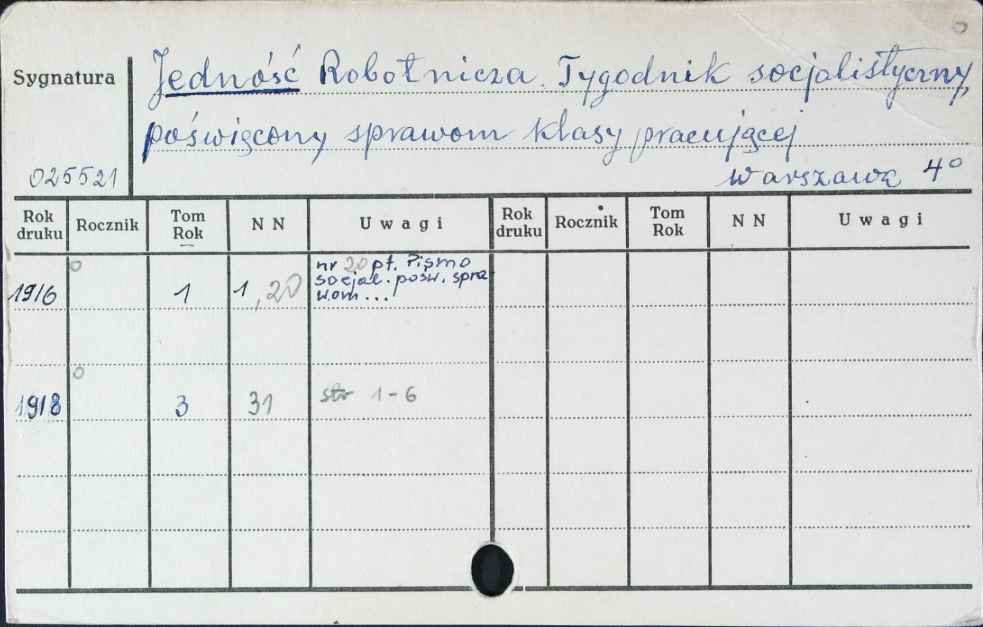 Sygnatura
Jedność Robotnicza. Tygodnik socjalistyczny,
poświęcony sprawom klasy pracującej
025521
Warszawa 4°
Rok druku Rocznik Tom Rok N N Uwagi Rok druku Rocznik Tom Rok N N Uwagi
1916 1 1,20 nr 20 pt. Pismo
socjal. pośw. spra
wom...
1918 3 31 str 1-6